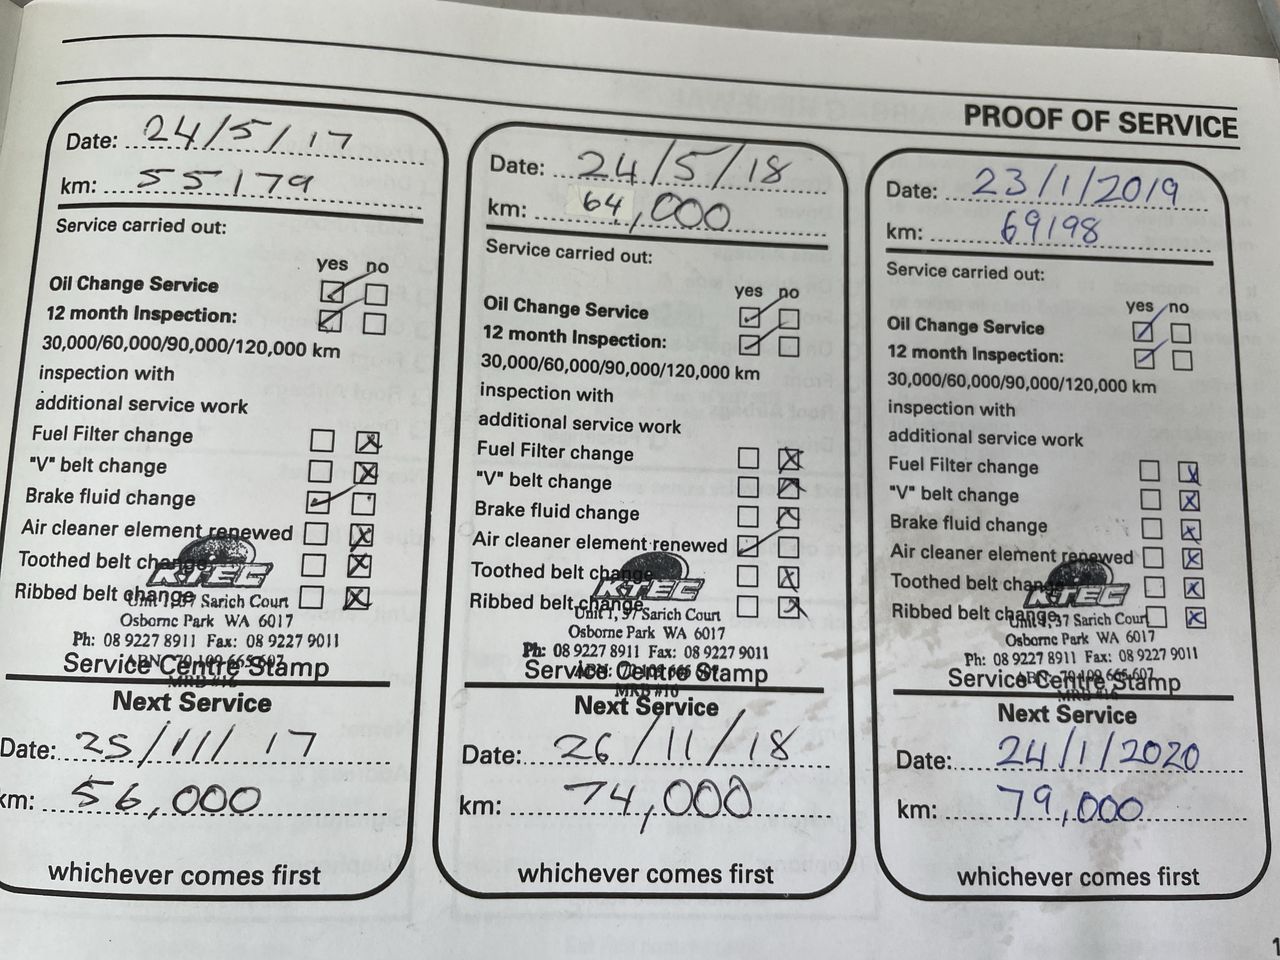 PROOF OF SERVICE
Date: 24/5/17
km: 55179
Service carried out:
yes no
Oil Change Service
12 month Inspection:
30,000/60,000/90,000/120,000 km
inspection with
additional service work
Fuel Filter change
"V" belt change
Brake fluid change
Air cleaner element renewed
Toothed belt change
Ribbed belt change
KTEC
Unit 1, 37 Sarich Court
Osborne Park WA 6017
Ph: 08 9227 8911 Fax: 08 9227 9011
Service Centre Stamp
Next Service
Date: 25/11/17
km: 56,000
whichever comes first
Date: 24/5/18
km: 64,000
Service carried out:
yes no
Oil Change Service
12 month Inspection:
30,000/60,000/90,000/120,000 km
inspection with
additional service work
Fuel Filter change
"V" belt change
Brake fluid change
Air cleaner element renewed
Toothed belt change
Ribbed belt change
KTEC
Unit 1, 37 Sarich Court
Osborne Park WA 6017
Ph: 08 9227 8911 Fax: 08 9227 9011
Service Centre Stamp
MRB #16
Next Service
Date: 26/11/18
km: 74,000
whichever comes first
Date: 23/1/2019
km: 69198
Service carried out:
yes no
Oil Change Service
12 month Inspection:
30,000/60,000/90,000/120,000 km
inspection with
additional service work
Fuel Filter change
"V" belt change
Brake fluid change
Air cleaner element renewed
Toothed belt change
Ribbed belt change
KTEC
Unit 1, 37 Sarich Court
Osborne Park WA 6017
Ph: 08 9227 8911 Fax: 08 9227 9011
Service Centre Stamp
Next Service
Date: 24/1/2020
km: 79,000
whichever comes first
1